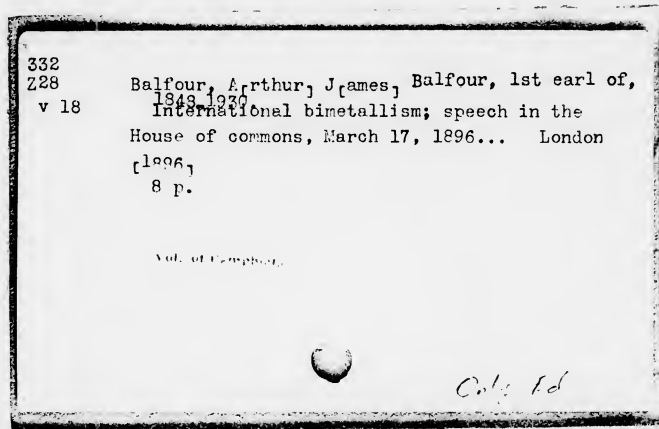 332
Z28
v 18
Balfour, A[rthur] J[ames] Balfour, 1st earl of,
1848-1930.
International bimetallism; speech in the
House of commons, March 17, 1896... London
[1896]
8 p.
Vol. of Pamphlets
Only Ed